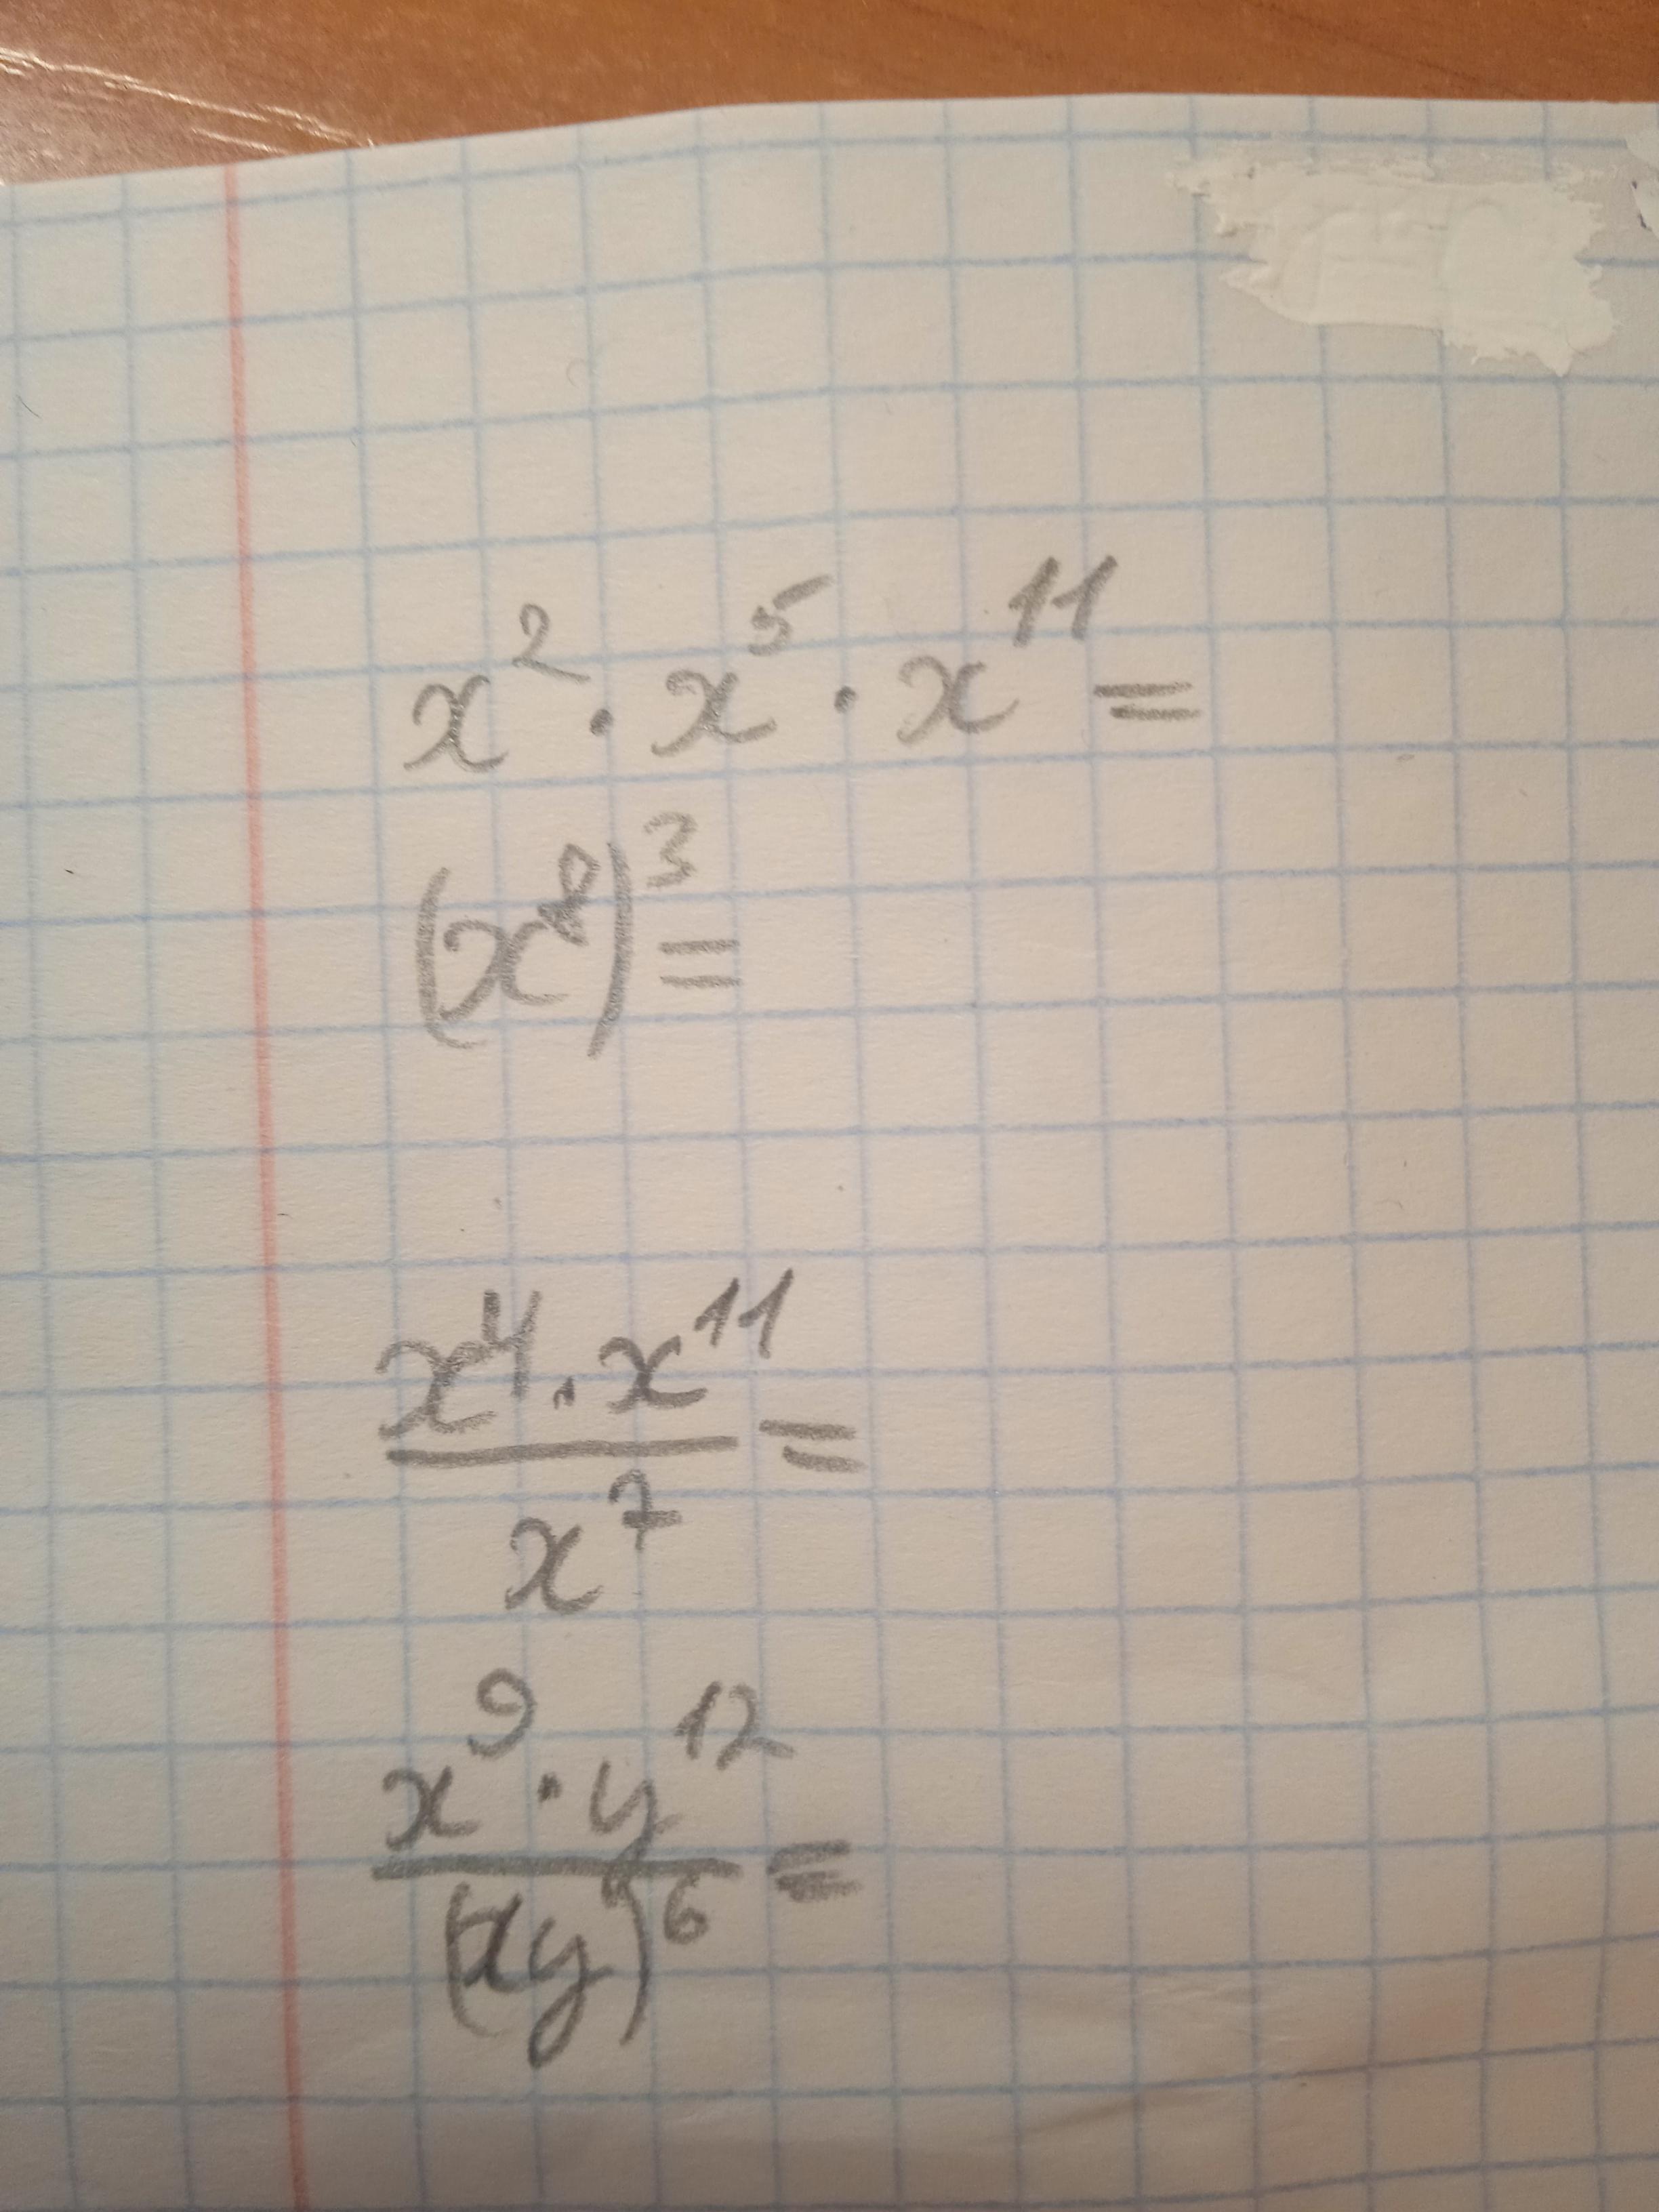 x² · x⁵ · x¹¹ =
(x⁸)³ =
x⁴ · x¹¹ =
x⁷
x⁹ · y¹² =
(xy)⁶